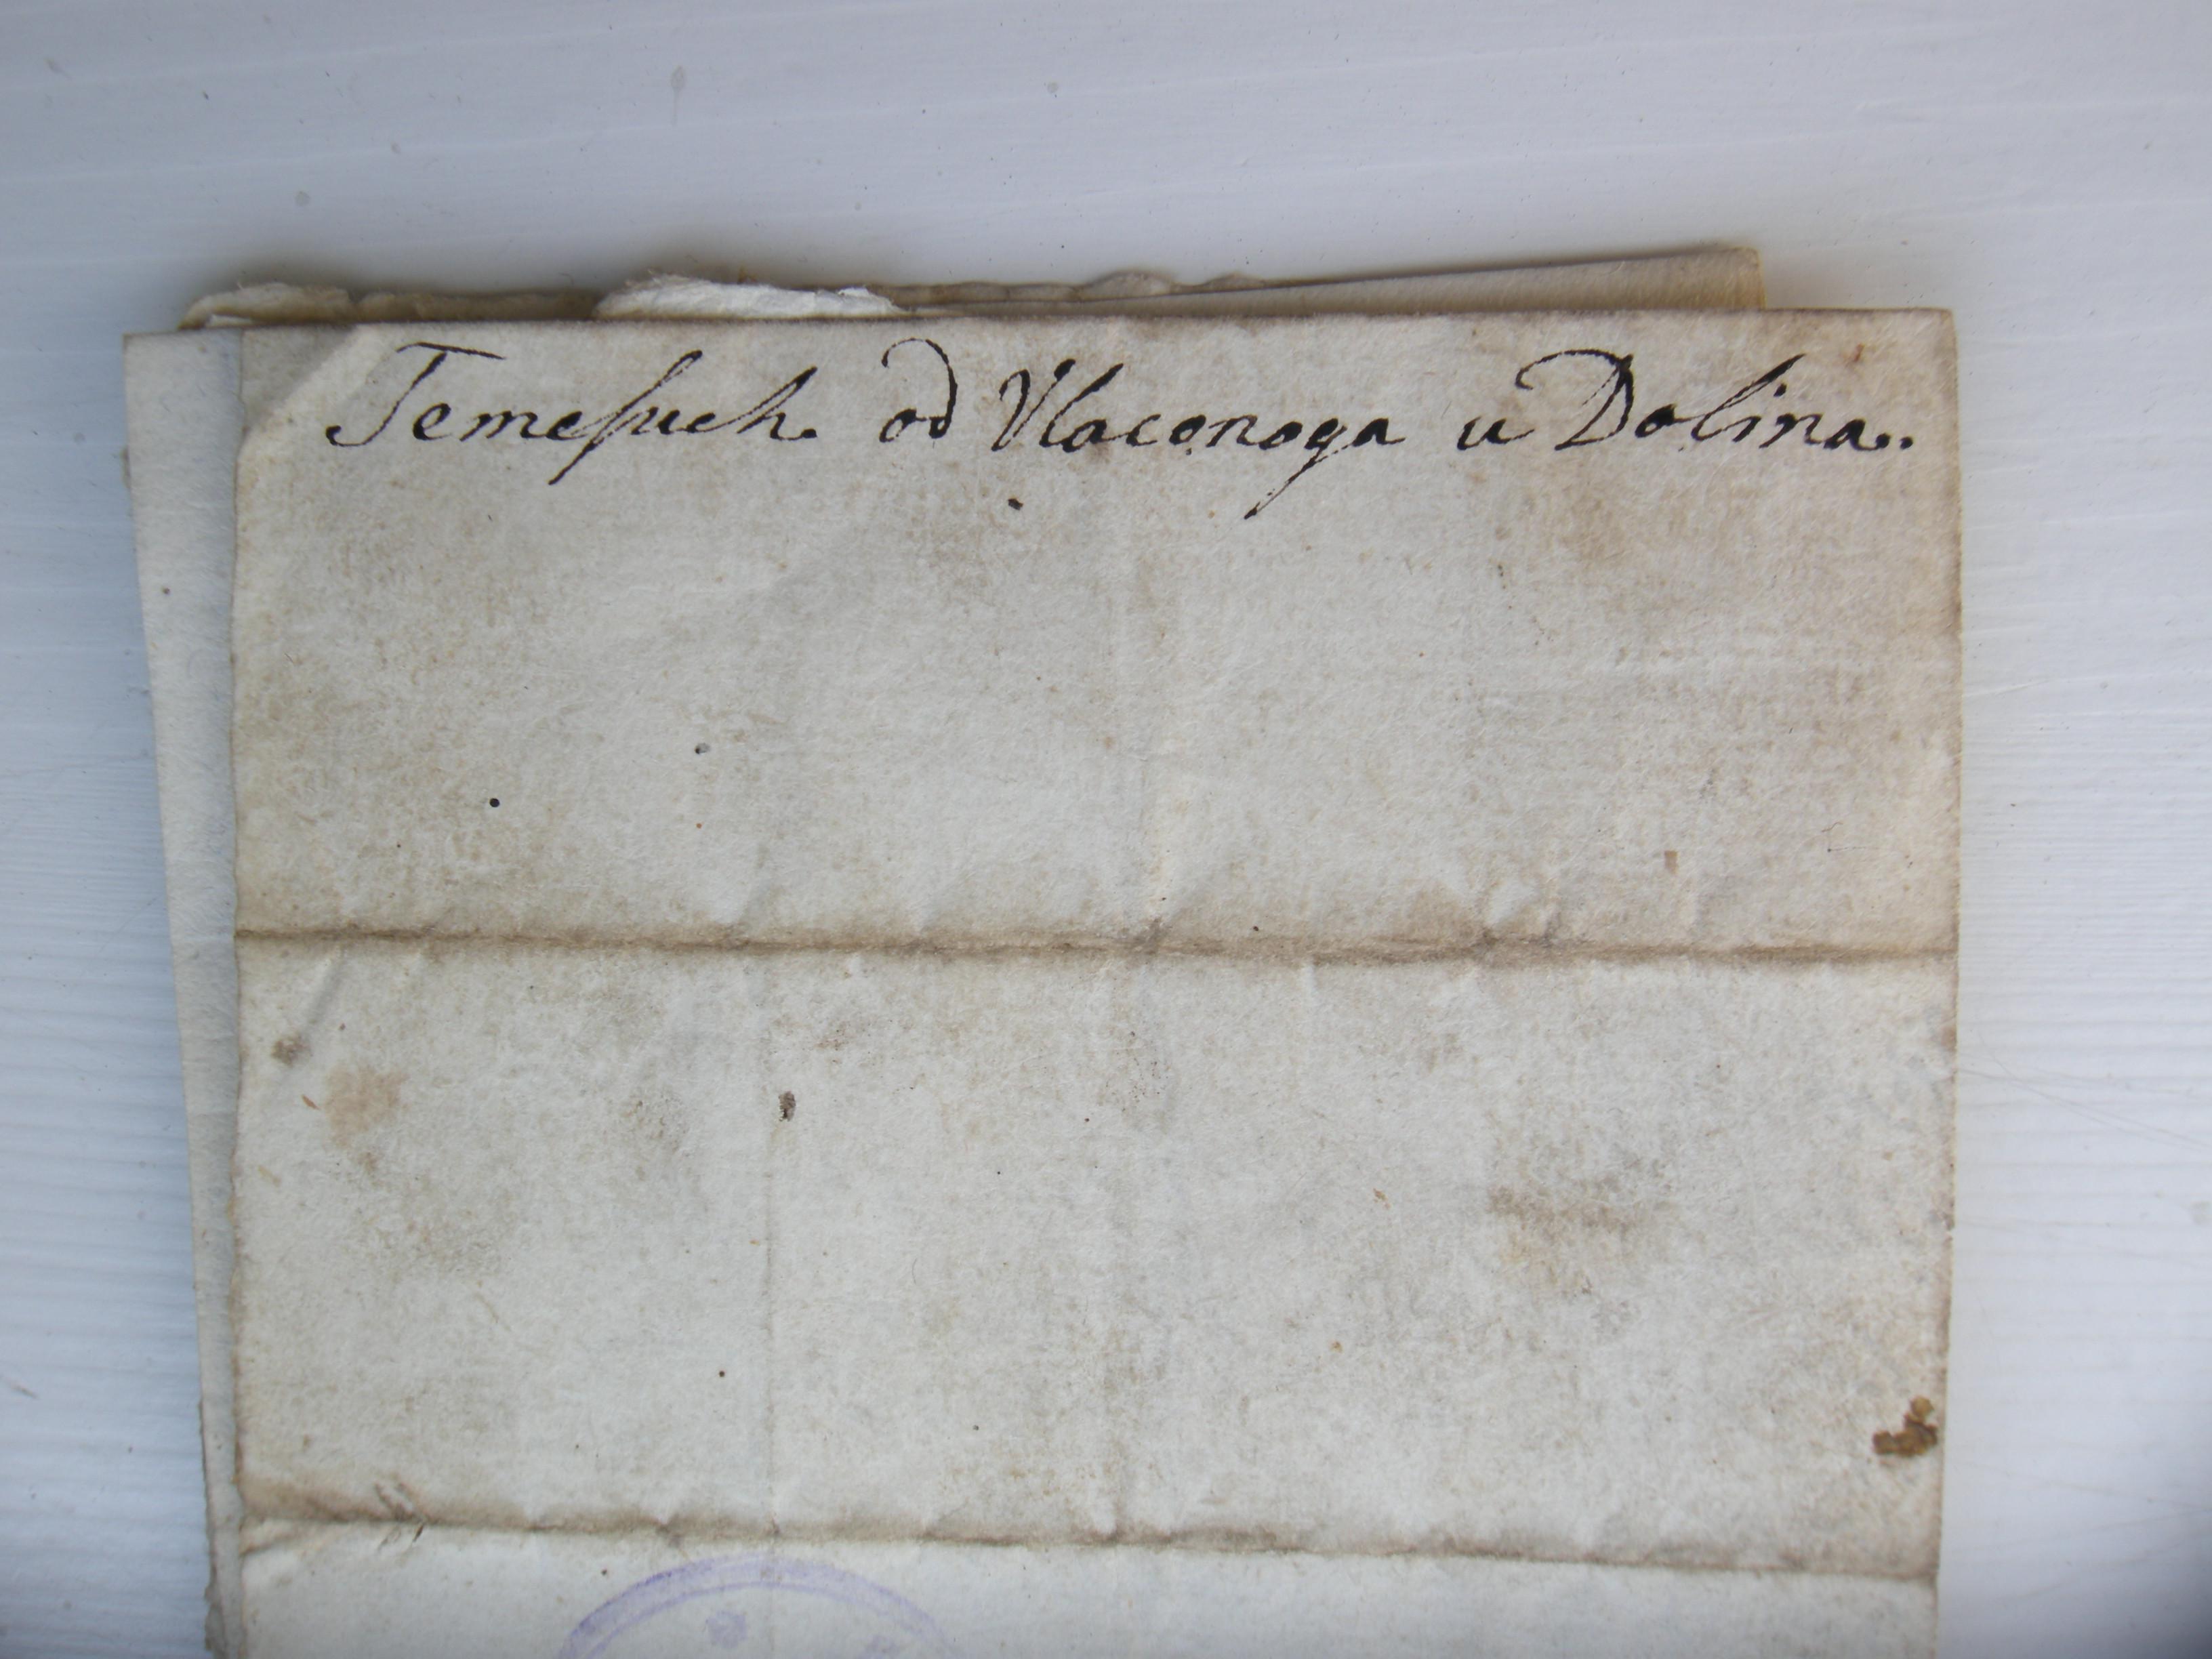 Temeſuch od Vlaconoga u Dolina..